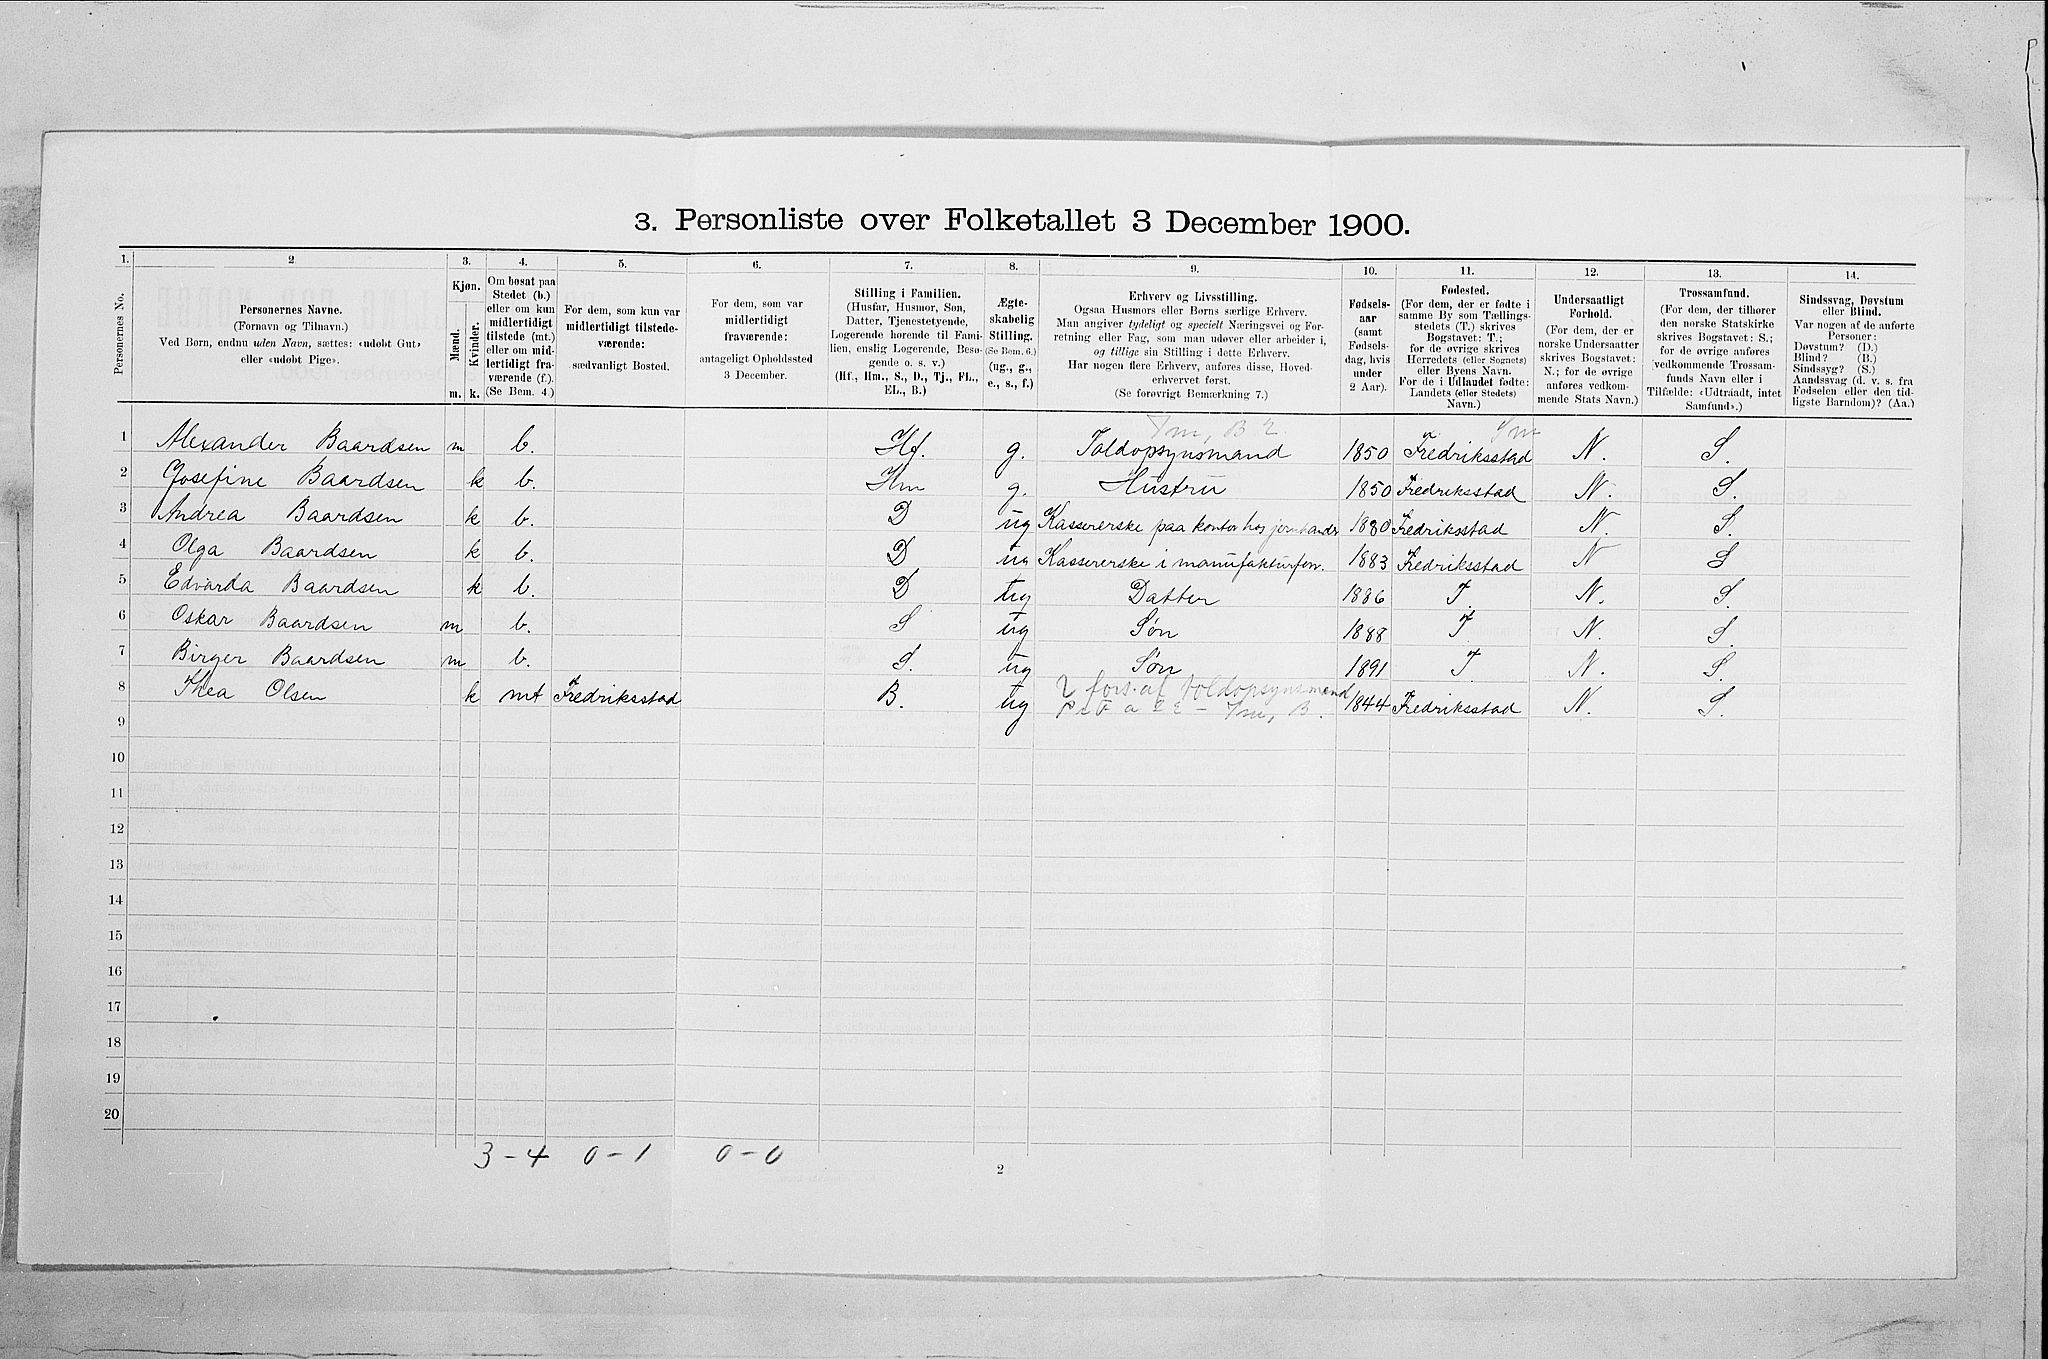 3. Personliste over Folketallet 3 December 1900.
1. 2 3. 4. 5. 6. 7. 8. 9. 10. 11. 12. 13. 14.
Personernes No.
Personernes Navne.
(Fornavn og Tilnavn.)
Ved Børn, endnu uden Navn, sættes: «udøbt Gut»
eller «udøbt Pige».
Kjøn.
Mænd.
Kvinder.
m. k.
Om bosat paa
Stedet (b.)
eller om kun
midlertidigt
tilstede (mt.)
eller om mid-
lertidigt fra-
værende (f.).
(Se Bem. 4.)
For dem, som kun var
midlertidigt tilstede-
værende:
sædvanligt Bosted.
For dem, som var
midlertidigt
fraværende:
antageligt Opholdssted
3 December.
Stilling i Familien.
(Husfar, Husmor, Søn,
Datter, Tjenestetyende,
Logerende hørende til Fami-
lien, enslig Logerende, Besø-
gende o. s. v.)
(Hf., Hm., S., D., Tj., FL.,
EL., B.)
Ægte-
skabelig
Stilling.
(Se Bem. 6.)
(ug., g.,
e., s., f.)
Erhverv og Livsstilling.
Ogsaa Husmors eller Børns særlige Erhverv.
Man angiver tydeligt og specielt Næringsvei og For-
retning eller Fag, som man udøver eller arbeider i,
og tillige sin Stilling i dette Erhverv.
Har nogen flere Erhverv, anføres disse, Hoved-
erhvervet først.
(Se forøvrigt Bemærkning 7.)
Fødsels-
aar
(samt
Fødsels-
dag, hvis
under
2 Aar).
Fødested.
(For dem, der er fødte i
samme By som Tællings-
stedets (T.) skrives
Bogstavet: T.;
for de øvrige skrives
Herredets (eller Sognets)
eller Byens Navn.
For de i Udlandet fødte:
Landets (eller Stedets)
Navn.)
Undersaatligt
Forhold.
(For dem, der er
norske Undersaatter
skrives Bogstavet:
N.; for de øvrige
anføres vedkom-
mende Stats Navn.)
Trossamfund.
(For dem, der tilhører
den norske Statskirke
skrives Bogstavet: S.;
for de øvrige anføres
vedkommende Trossam-
funds Navn eller i
Tilfælde: «Udtraadt, intet
Samfund».)
Sindssvag, Døvstum
eller Blind.
Var nogen af de anførte
Personer:
Døvstum? (D.)
Blind? (B.)
Sindssyg? (S.)
Aandssvag (d. v. s. fra
Fødselen eller den tid-
ligste Barndom)? (Aa.)
1 Alexander Baardsen m b. Hf. g. Toldopsynsmand 1850 Fredriksstad N. S.
2 Josefine Baardsen k b. Hm g. Hustru 1850 Fredriksstad N. S.
3 Andrea Baardsen k b. D ug Kassererske paa kontor hos 1880 Fredriksstad N. S.
4 Olga Baardsen k b. D ug Kassererske i manufakturfon. 1883 Fredriksstad N S
5 Edvarda Baardsen k b. D ug Datter 1886 T. N. S.
6 Oskar Baardsen m b. S ug Søn 1888 T. N. S.
7 Birger Baardsen m b. S. ug Søn 1891 T. N. S.
8 Thea Olsen k mt Fredriksstad B. ug fors. af Toldopsynsmand 1844 Fredriksstad N. S.
9
10
11
12
13
14
15
16
17
18
19
20
3-4 0-1 0-0
2